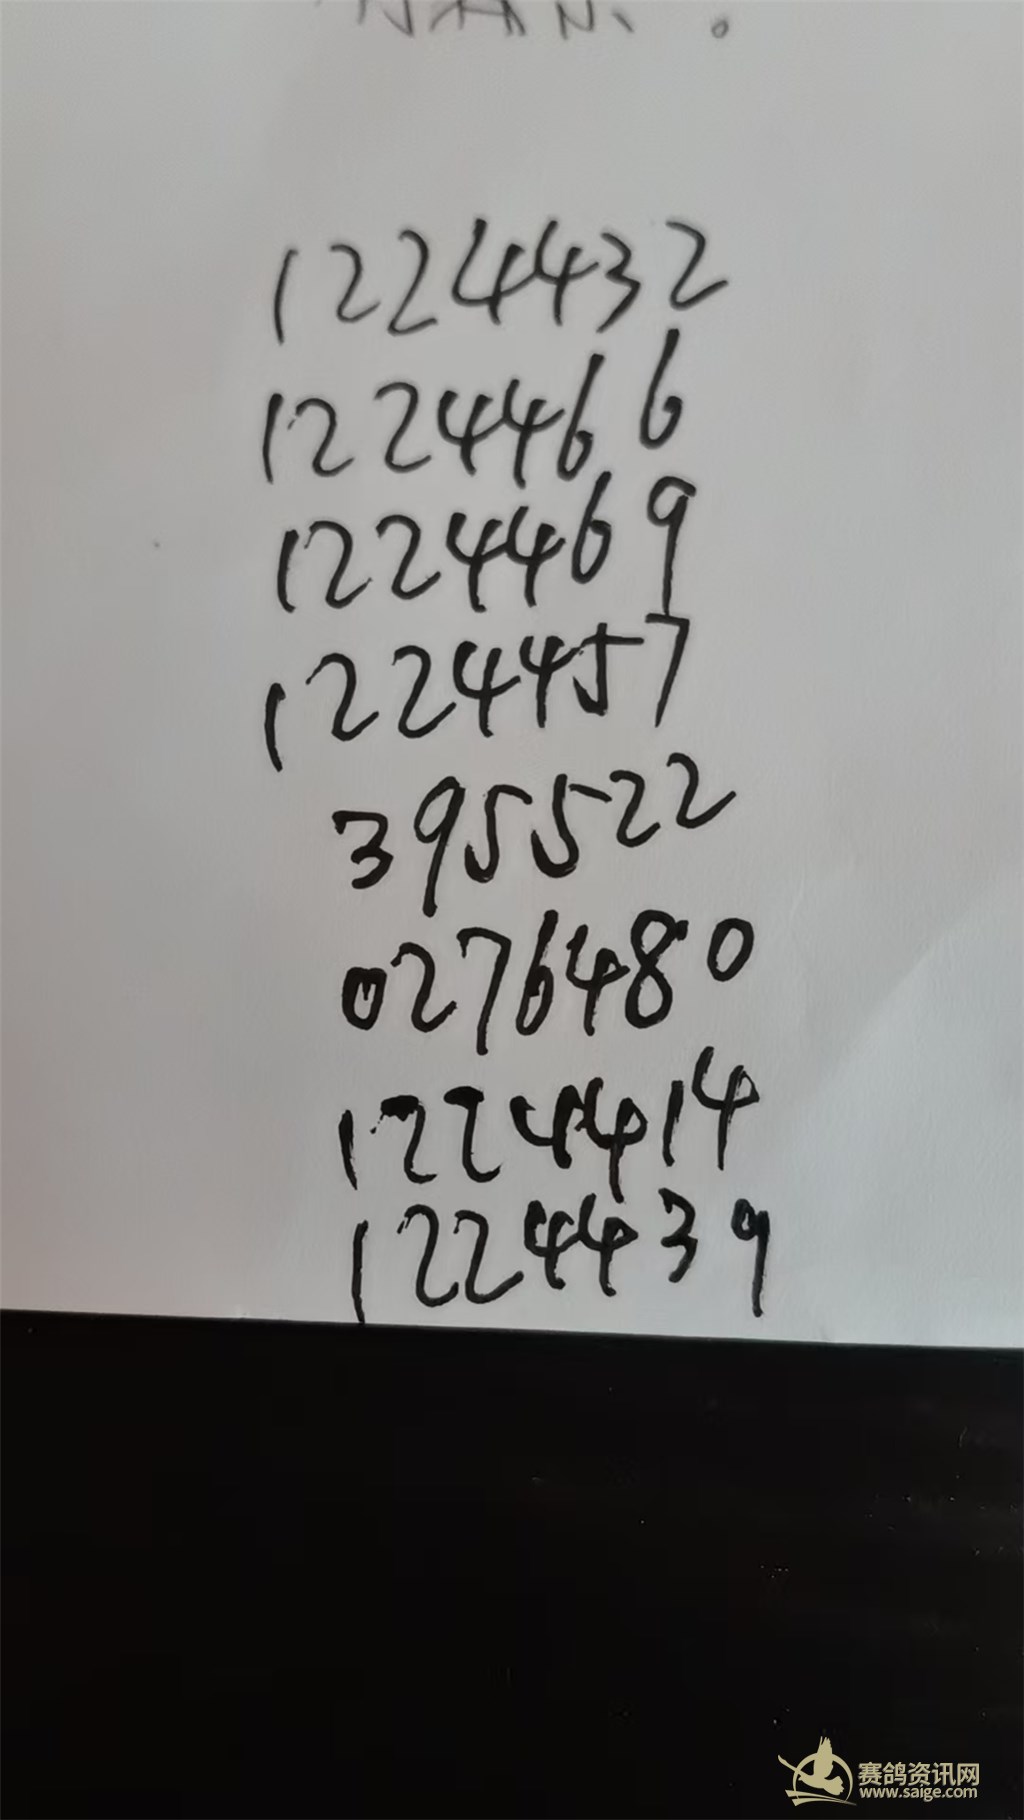 1224432
1224466
1224469
1224457
395522
0276480
1224414
1224439
赛鸽资讯网
www.saige.com